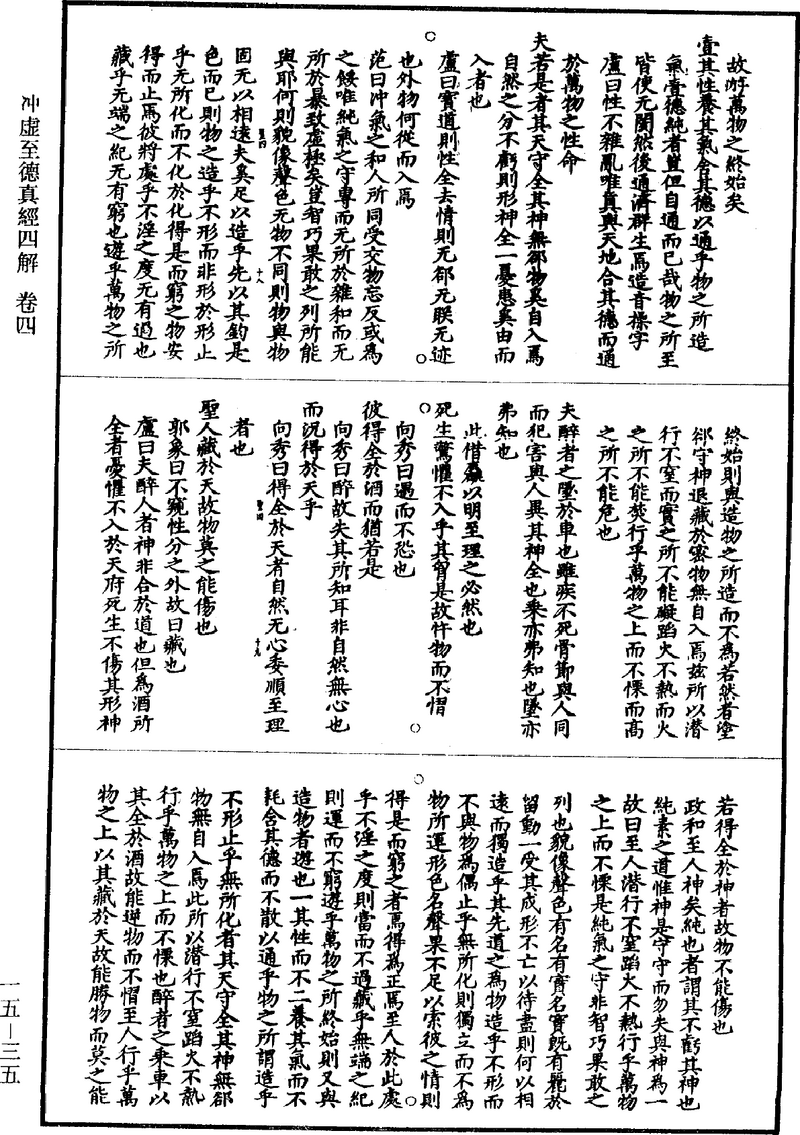 冲虛至德真經四解　卷四
故游萬物之終始矣
壹其性養其氣含其德以通乎物之所造
氣壹德純者豈但自通而已哉物之所至
皆使无閡然後通濟群生焉造音操字
盧曰性不雜亂唯真與天地合其德而通
於萬物之性命
夫若是者其天守全其神無郤物奚自入焉
自然之分不虧則形神全一憂患奚由而
入者也
盧曰實道則性全去情則无郤无朕无迹
也外物何從而入焉
范曰冲氣之和人所同受交物忘反或為
之餒唯純氣之守專而无所於雜和而无
所於暴致虛極矣豈智巧果敢之列所能
與耶何則貌像聲色无物不同則物與物
固无以相遠夫奚足以造乎先以其鈞是
色而已則物之造乎不形而非形於形止
乎无所化而不化於化得是而窮之物安
得而止焉彼將處乎不淫之度无有過也
藏乎无端之紀无有窮也遊乎萬物之所
終始則與造物之所造而不為若然者塗
郤守神退藏於密物無自入焉茲所以潛
行不窒而實之所不能礙蹈火不熱而火
之所不能焚行乎萬物之上而不慄而高
之所不能危也
夫醉者之墜於車也雖疾不死骨節與人同
而犯害與人異其神全也乘亦弗知也墜亦
弗知也
此借麤以明至理之必然也
死生驚懼不入乎其胷是故忤物而不慴
向秀曰遇而不恐也
彼得全於酒而猶若是
向秀曰醉故失其所知耳非自然無心也
而況得於天乎
向秀曰得全於天者自然无心委順至理
者也
聖人藏於天故物莫之能傷也
郭象曰不窺性分之外故曰藏也
盧曰夫醉人者神非合於道也但為酒所
全者憂懼不入於天府死生不傷其形神
若得全於神者故物不能傷也
政和至人神矣純也者謂其不虧其神也
純素之道惟神是守守而勿失與神為一
故曰至人潛行不窒蹈火不熱行乎萬物
之上而不慄是純氣之守非智巧果敢之
列也貌像聲色有名有實名實既有範於
留動一受其成形不亡以待盡則何以相
遠而獨造乎其先道之為物造乎不形而
不與物為偶止乎無所化則獨立而不為
物所運形色名聲果不足以索彼之情則
得是而窮之者焉得為正焉至人於此處
乎不淫之度則當而不過藏乎無端之紀
則運而不窮遊乎萬物之所終始則又與
造物者遊也一其性而不二養其氣而不
耗含其德而不散以通乎物之所謂造乎
不形止乎無所化者其天守全其神無郤
物無自入焉此所以潛行不窒蹈火不熱
行乎萬物之上而不慄也醉者之乘車以
其全於酒故能逆物而不慴至人行乎萬
物之上以其藏於天故能勝物而莫之能
一五—三五